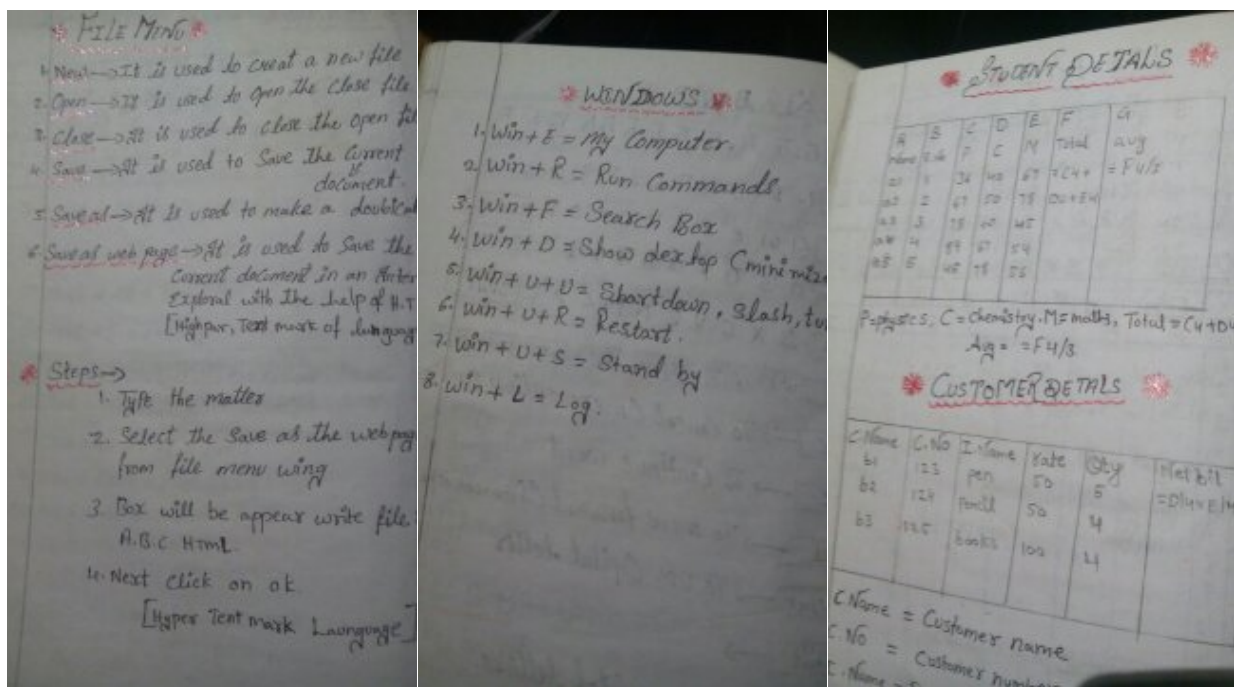 FILE MENU
1. New → It is used to creat a new file
2. Open → It is used to open the close file
3. Close → It is used to close the open
4. Save → It is used to Save the Current
document.
5. Save as → It is used to make a
6. Save as web page → It is used to Save the
Current document in an
Exploral with the help of H.T
[High par, Text mark of
Steps →
1. Type the matter
2. Select the Save as the web pag
from file menu wing
3. Box will be appear write file
A.B.C HTML.
4. Next click on ok
[Hyper Tent mark Laungugge]
WINDOWS
1. Win + E = My Computer.
2. Win + R = Run Commands.
3. Win + F = Search Box
4. Win + D = Show dex top (minimiz
5. Win + U + U = Shartdown, Slash, tu
6. Win + U + R = Restart.
7. Win + U + S = Stand by
8. Win + L = Log.
STUDENT DETALS
A B C D E F G
Name P C M Total avg
1 36 40 67 = F4/3
2 67 50 78
3 78 60 45
4 89 67 54
5 45 78 56
P=physics, C=chemistry. M=maths, Total = C4+D4
Avg = =F4/3
CUSTOMER DETALS
C.Name C.No I.Name rate Qty Net bil
b1 123 pen 50 5
b2 124 Pencil 50 4
b3 125 books 100 4
C.Name = Customer name
C.No = Customer number